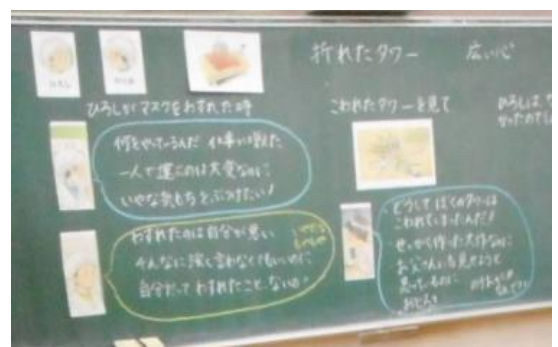 折れたタワー 広い心
ひろし
ひろしがマスクをわすれた時
何をやっているんだ 仕事が増えた
一人で運ぶのは大変なのに
いやな気もちをぶつけたい！
わすれたのは自分が悪い
そんなに強く言わなくてもいいのに
自分だってわすれたこと ないの？
こわれたタワーを見て
どうしてぼくのタワーは
こわれてしまったんだ！
せっかく作った大作なのに
お父さんにも見せようと
思っていたのに
ひろしは、